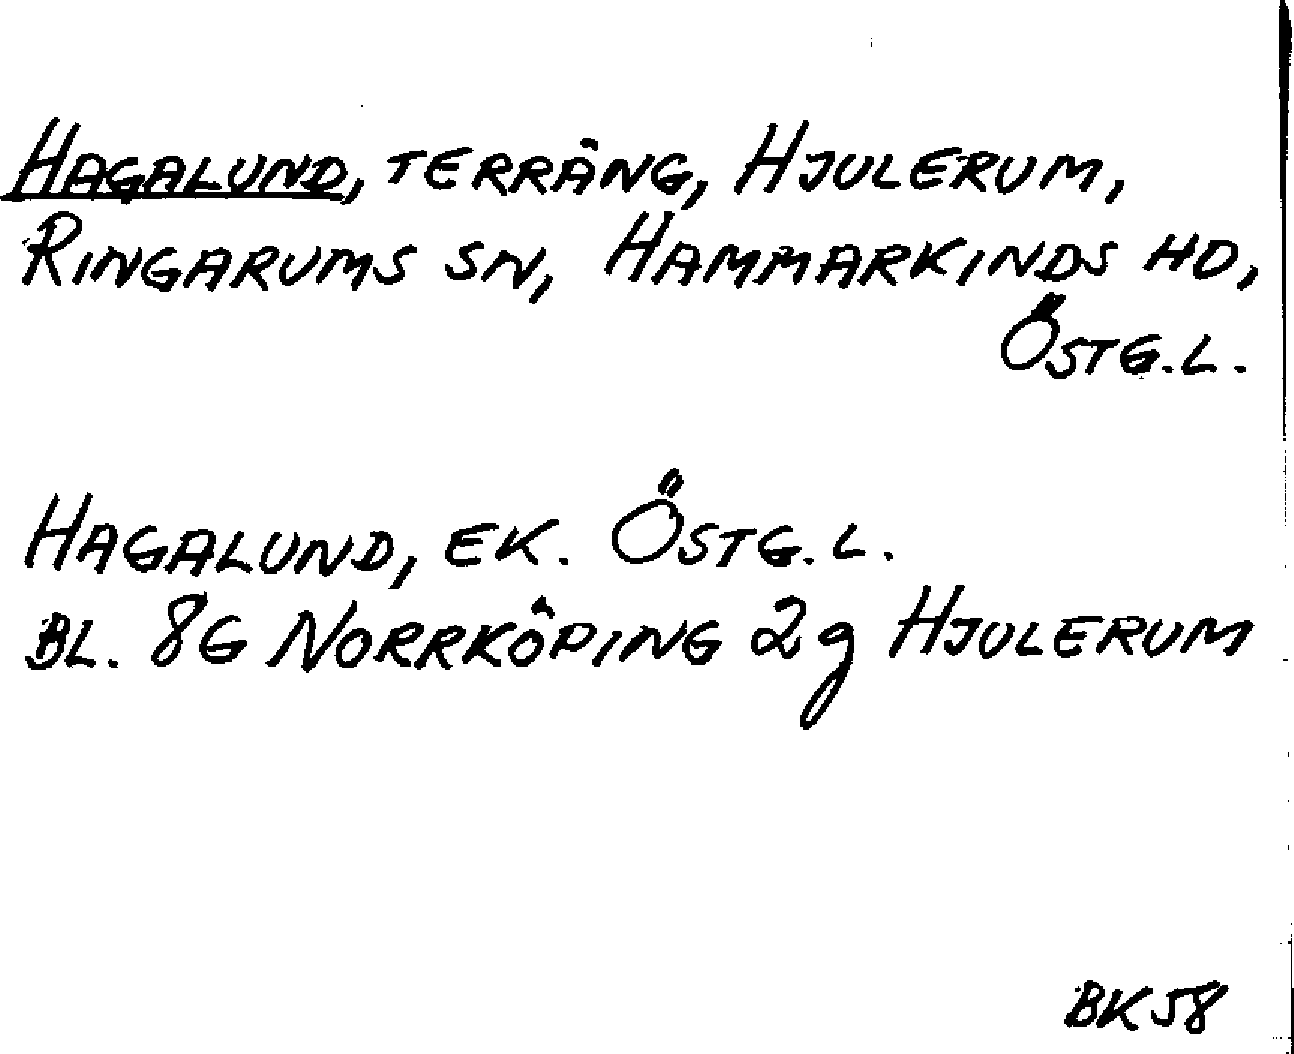 HAGALUND, TERRÄNG, HJULERUM,
RINGARUMS SN, HAMMARKINDS HD,
ÖSTG.L.
HAGALUND, EK. ÖSTG. L.
BL. 8G NORRKÖPING 2g HJULERUM
BK58